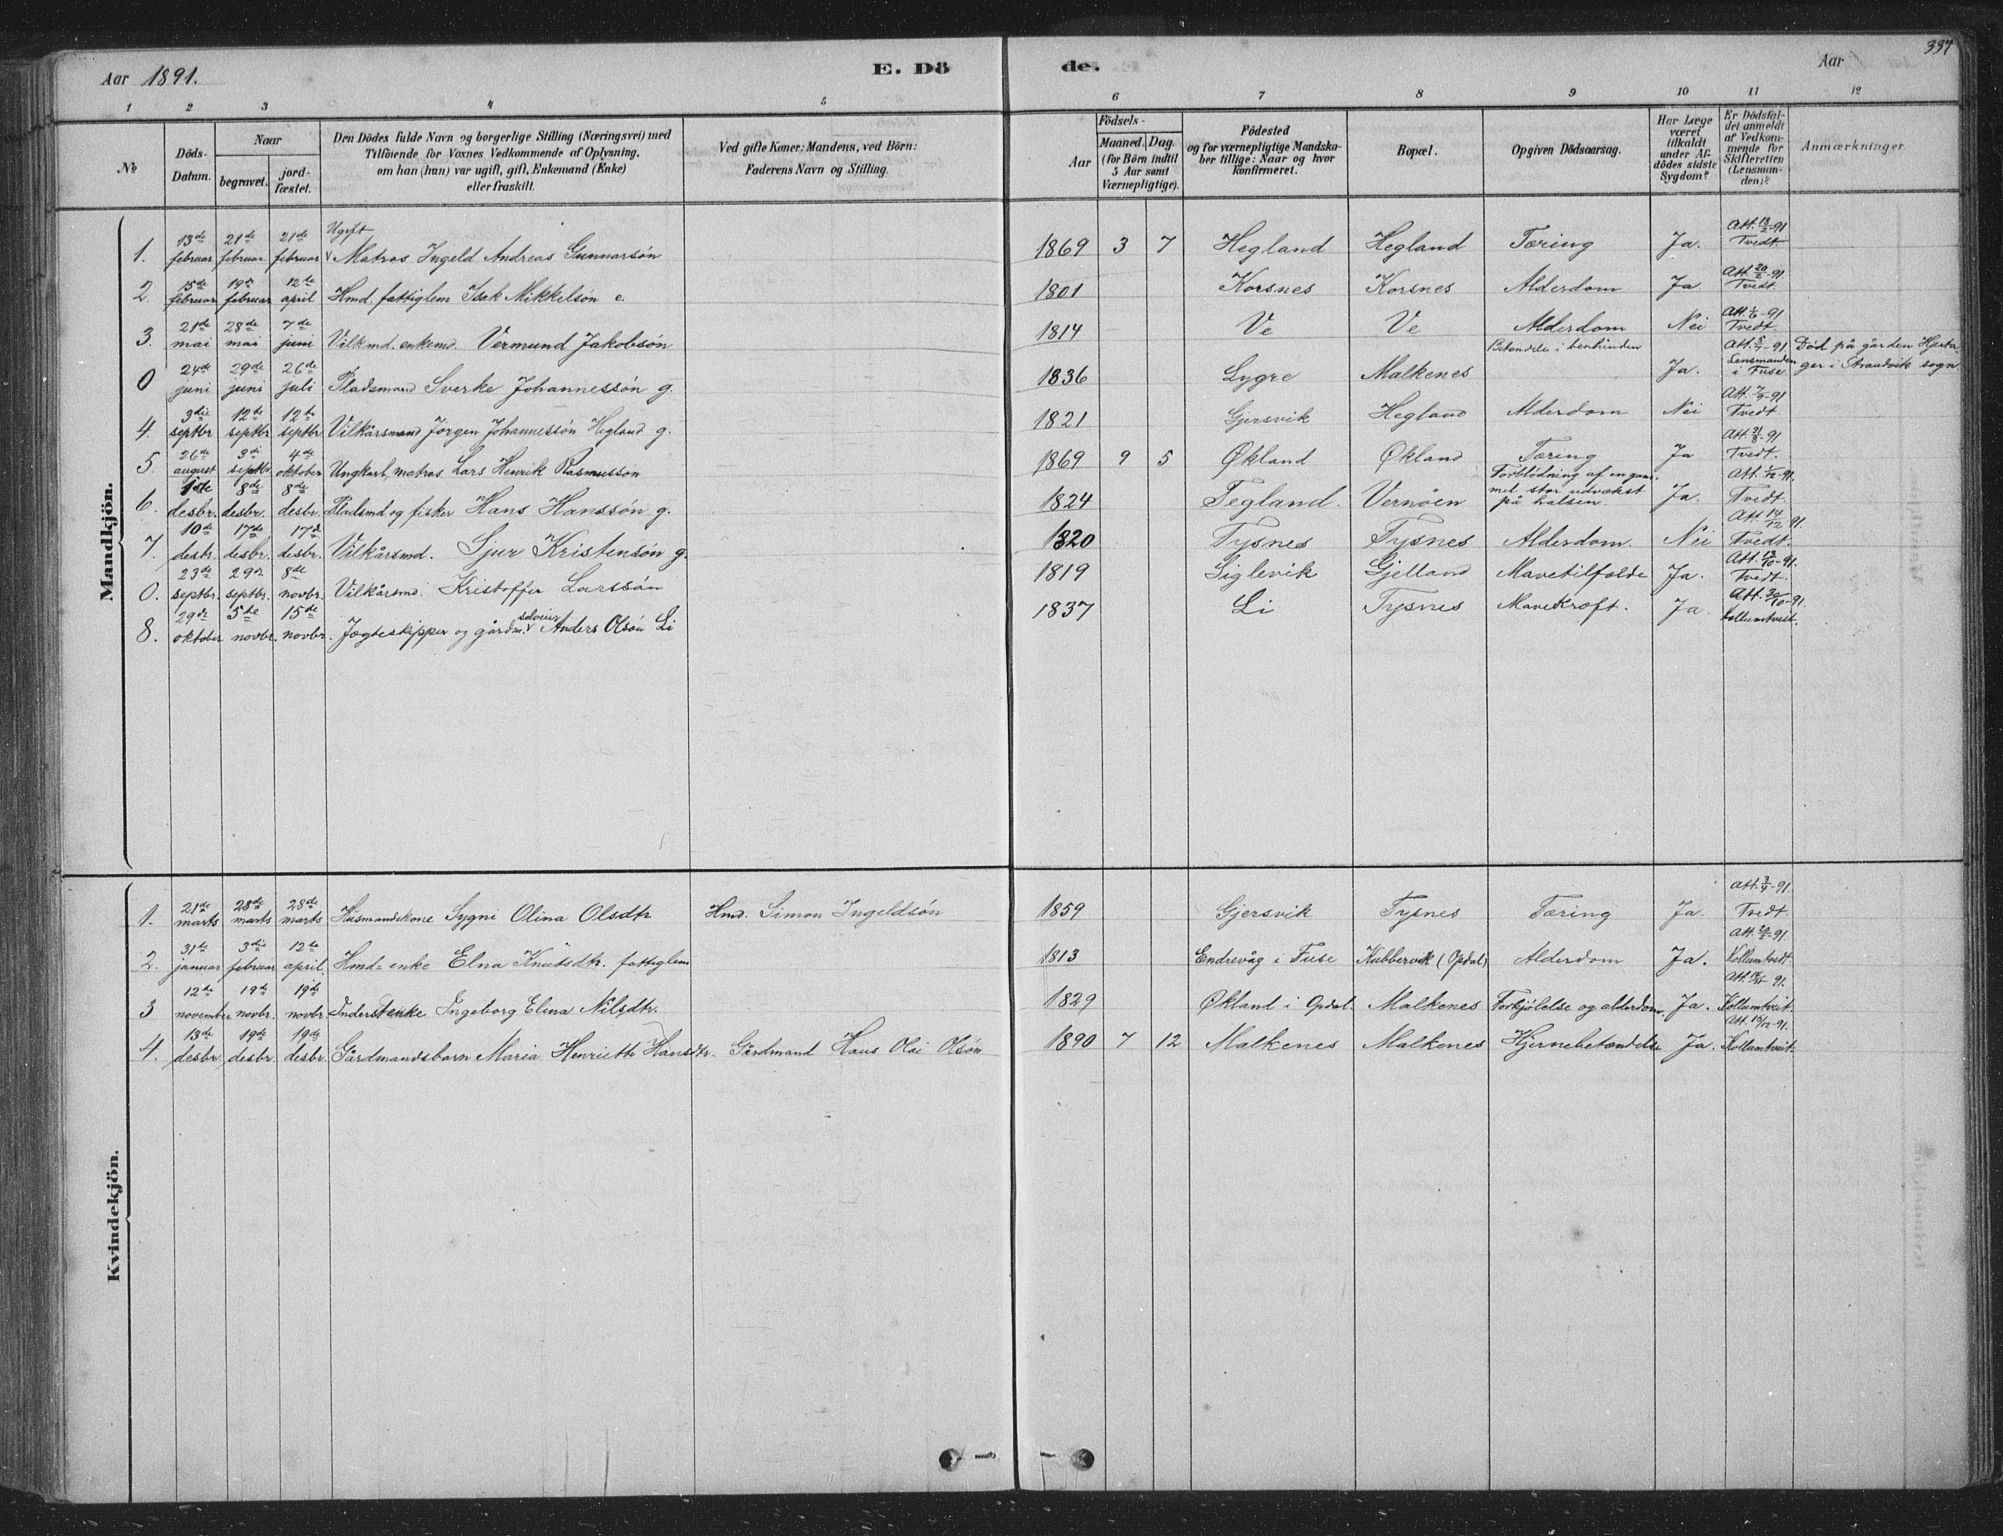 Aar 1891.
E. Dö
de.
Aar
337
1 2 3 4 5 6 7 8 9 10 11 12
No
Döds-Datum.
Naar
begravet.
jord-fæstet.
Den Dödes fulde Navn og borgerlige Stilling (Næringsvei) med
Tilföiende for Voxnes Vedkommende af Oplysning,
om han (hun) var ugift, gift, Enkemand (Enke)
eller fraskilt.
Ved gifte Koner: Mandens, ved Börn:
Faderens Navn og Stilling.
Födsels-
Aar
Maaned. Dag.
(for Börn indtil
5 Aar samt
Værnepligtige).
Födested
og for værnepligtige Mandska-
ber tillige: Naar og hvor
konfirmeret.
Bopæl.
Opgiven Dödsaarsag.
Har Læge
været
tilkaldt
under Af-
dödes sidste
Sygdom?
Er Dödsfal-
det anmeldt
af Vedkom-
mende for
Skifteretten
(Lensman-
den)?
Anmærkninger.
Mandkjön.
1. 13de februar 21de februar 21de februar Ugift Matros Ingeld Andreas Gunnarsön 1869 3 7 Hegland Hegland Tæring Ja. Att. 13/2-91 Tvedt
2. 15de februar 19de februar 12te april Hmd. fattiglem Isak Mikkelsön e. 1801 Korsnes Korsnes Alderdom Ja Att. 20/2-91 Tvedt.
3. 21de mai 28de mai 7de juni Vilkmd. enkemd. Vermund Jakobsön 1814 Ve Ve Alderdom Nei Att. 1/6-91 Tvedt
0 24de juni 29de juni 26de juli Pladsmand Sverke Johannessön g. 1836 Lygre Malkenes Betændelse i benhinden Ja. Att. -91 Lensmanden i Fuse. Död på gården Hjorta-
ger i Strandvik sogn
4. 3die septbr. 12te septbr 12te septbr. Vilkårsmand Jörgen Johannessön Hegland g. 1821 Gjersvik Hegland Alderdom Nei Att. 7/9-91 Tvedt.
5. 26de august 3die septbr. 4de oktober Ungkarl, matros Lars Henrik Rasmusson 1869 9 5 Økland Økland Tæring Ja Att. 31/8-91 Tvedt.
6. 1ste desbr. 8de desbr. 8de desbr. Pladsmd og fisker Hans Hanssön g. 1824 Tegland. Vernöen Forblödning af en gam-
mel stor udvækst
på halsen. Ja. Att. 1/12-91. Tvedt
7. 10de desbr. 17de desbr. 17de desbr. Vilkårsmd. Sjur Kristensön g. 1820 Tysnes Tysnes Alderdom. Nei Att. 14/12 91. Tvedt.
0. 23de septbr. 29de septbr. 8de novbr. Vilkårsmd. Kristoffer Larssön 1819 Siglevik Gjelland Mavetilfælde Ja. Att. -91. Tvedt.
8. 29de oktober 5te novbr. 15de novbr. Jægteskipper og gårdm. selveier Anders Olsön Li 1837 Li Tysnes Mavekræft. Ja. Att. 30/10-91. Kollumtveit.
Kvindekjön.
1. 21de marts 28de marts 28de marts Husmandskone Sygni Olina Olsdtr Hmd. Simon Ingeldsön 1859 Gjersvik Tysnes Tæring Ja. Att. 3/4-91. Tvedt.
2. 31te januar 3die februar 12te april Hmd= enke Elna Knutsdtr. fattiglem 1813 Endrevåg i Fuse Kubbervik (Opdal) Alderdom Ja. Att. -91. Kollumtvedt.
3 12te november 19de novbr. 19de novbr. Inderstenke Ingeborg Elina Nilsdtr. 1829 Økland i Opdal Malkenes Forkjölelse og alderdom Ja. Att. -91. Kollumtveit.
4. 13de desbr. 19de desbr. 19de desbr. Gårdmandsbarn Maria Henriette Hansdtr. Gårdmand Hans Olai Olsön 1890 7 12 Malkenes Malkenes Hjernebetændelse Ja. Att. -91. Kollumtveit.